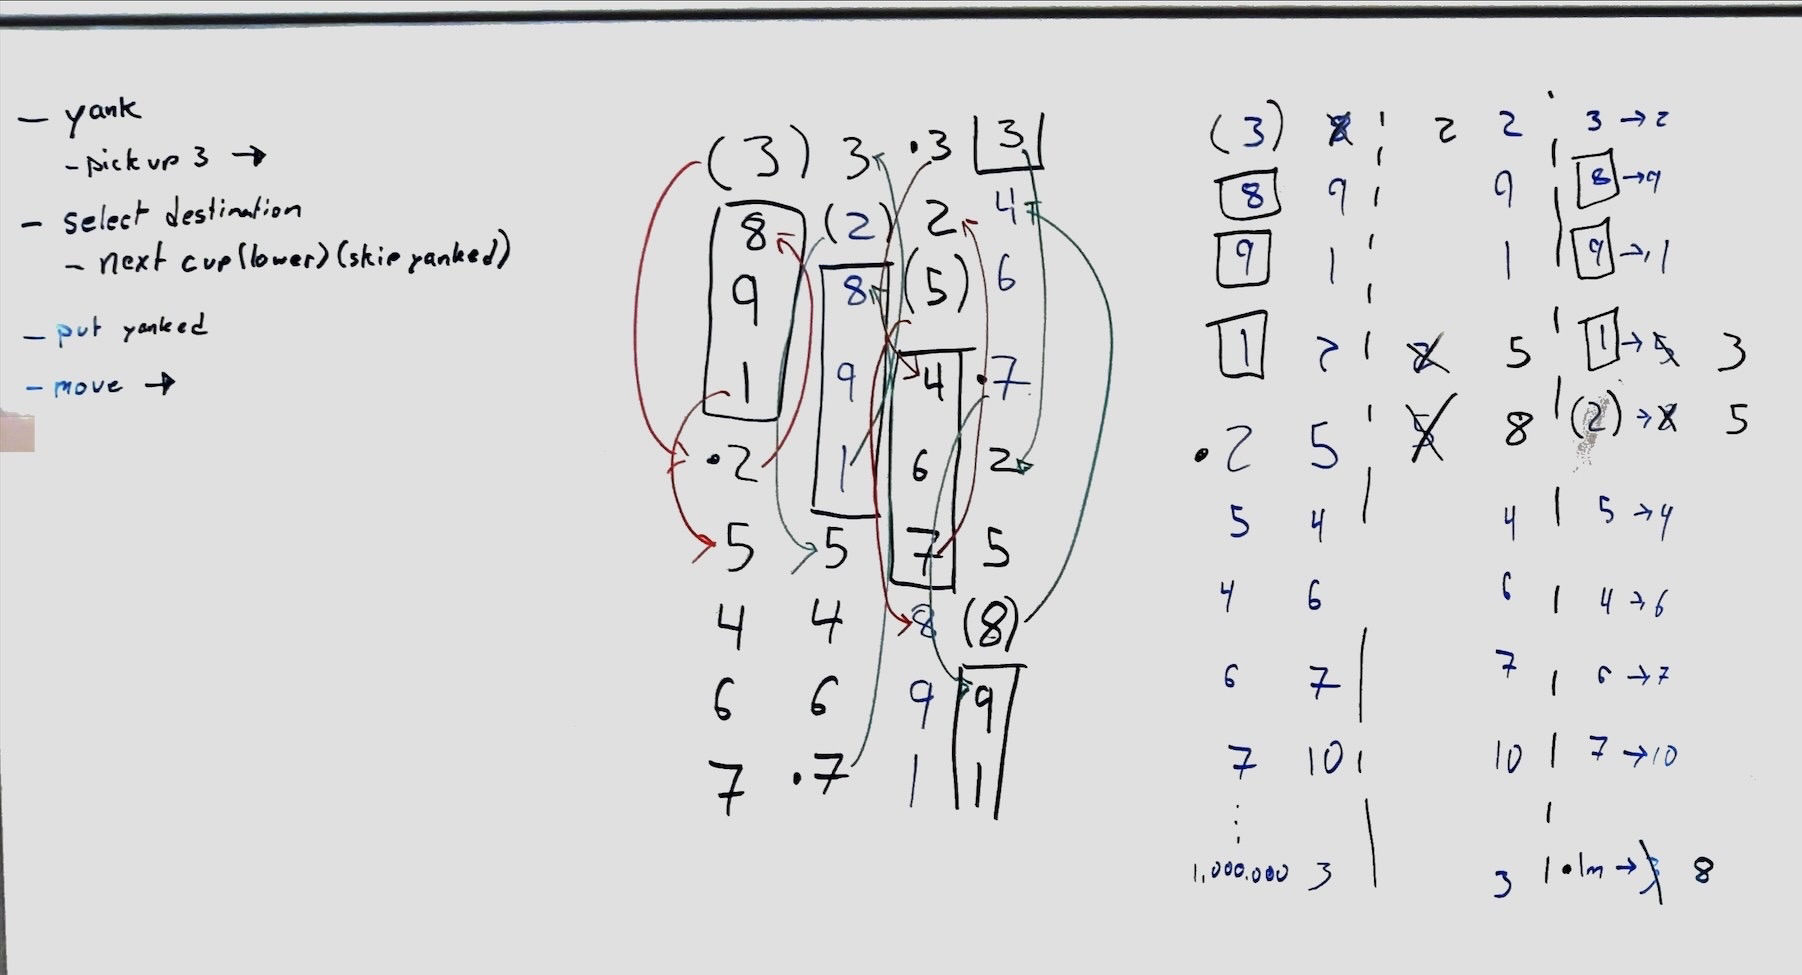 - yank
- pick up 3 →
- select destination
- next cup (lower) (skip yanked)
- put yanked
- move →
(3) 3 .3 3
8 (2) 2 4
9 8 (5) 6
1 9 4 .7
.2 1 6 2
5 5 7 5
4 4 8 (8)
6 6 9 9
7 .7 1 1
(3) 2 2 3 → 2
8 9 9 8 → 9
9 1 1 9 → 1
1 2 5 1 → 5 3
.2 5 8 (2) → 8 5
5 4 4 5 → 4
4 6 6 4 → 6
6 7 7 6 → 7
7 10 10 7 → 10
1,000,000 3 3 .1m → 3 8